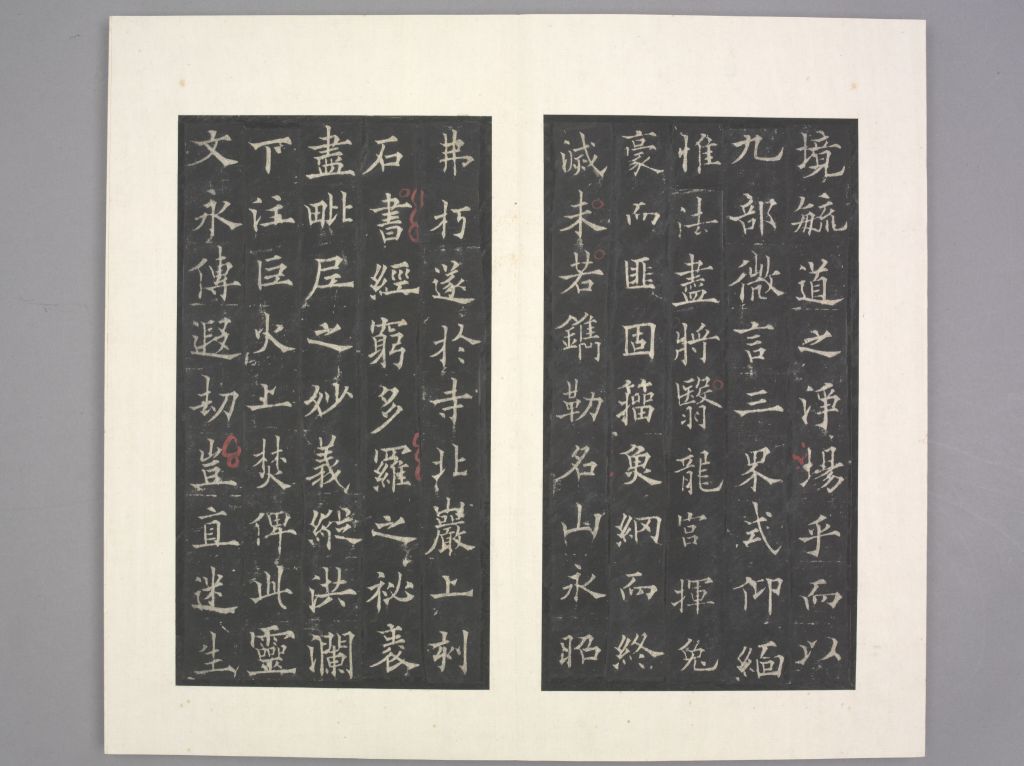 境毓道之淨場乎而以
九部微言三界式仰緬
惟法盡將翳龍宮揮兔
豪而匪固籀奐網而終
滅未若鐫勒名山永昭
弗朽遂於寺北巖上刻
石書經窮多羅之祕袠
盡毗尼之妙義縱洪瀾
下注巨火上焚俾此靈
文永傳遐劫豈直迷生